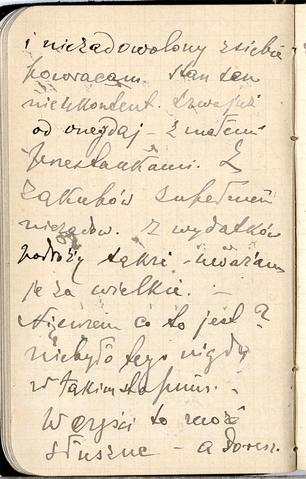 i niezadowolony z siebie
powracam. Stan ten
niekontent. trwa już
od onegdaj – z małemi
przestankami. Z
zakupów zupełnie
niezadow. z wydatków
podróży także – uważam
je za wielkie. –
Niewiem co to jest?
niebyło tego nigdy
w takim stopniu. –
W części to może
słuszne – a